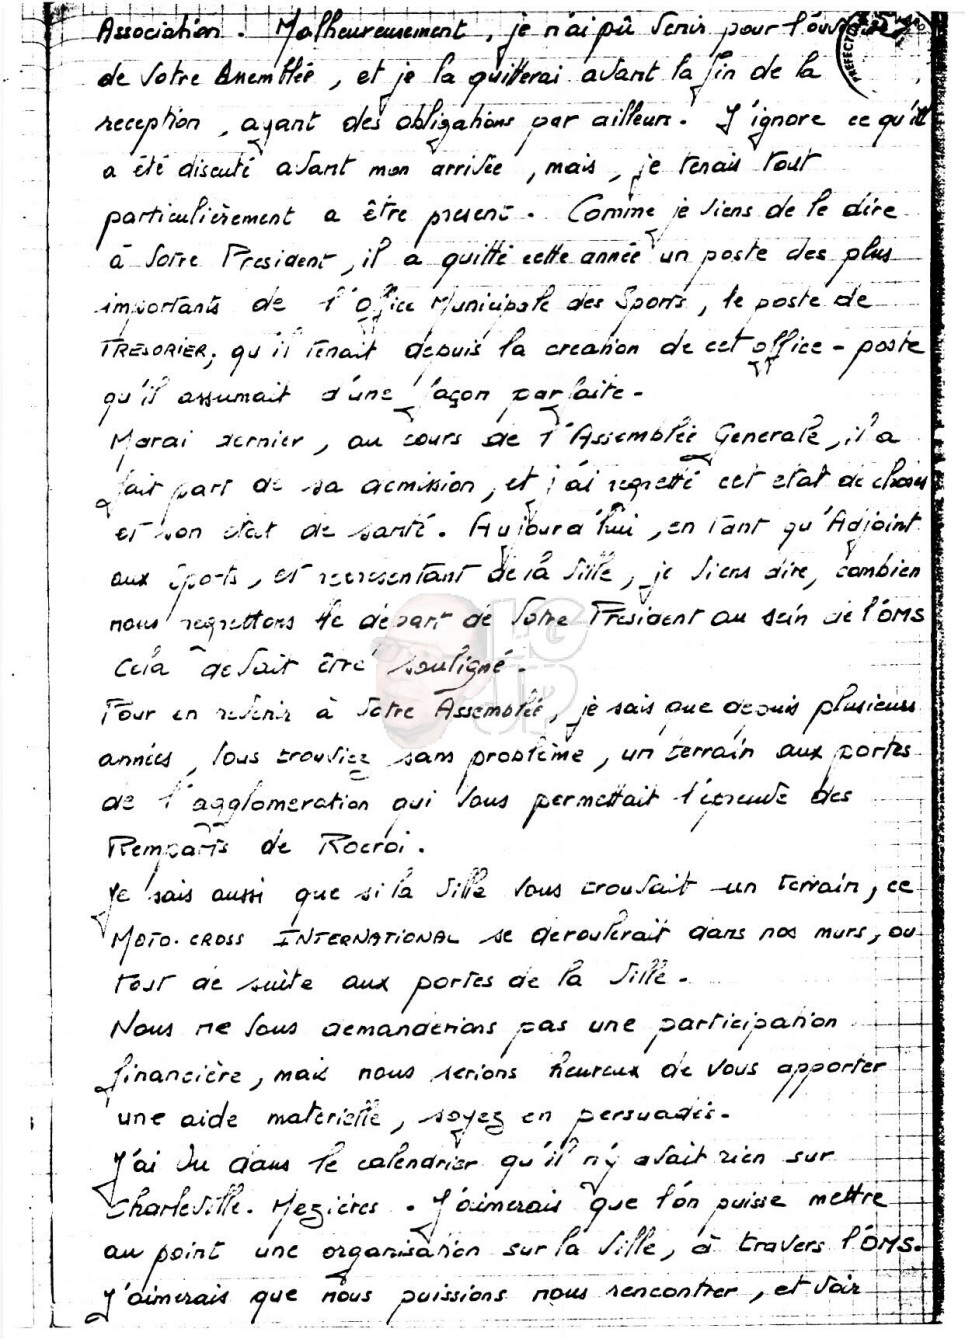 Association. Malheureusement, je n'ai pû venir pour l'ouv
de votre Assemblée, et je la quitterai avant la fin de la
reception, ayant des obligations par ailleurs. J'ignore ce qu'il
a été discuté avant mon arrivée, mais, je tenais tout
particulièrement a être present. Comme je viens de le dire
à votre President, il a quitté cette année un poste des plus
importants de l'Office Municipale des Sports, le poste de
TRESORIER, qu'il tenait depuis la creation de cet office - poste
qu'il assumait d'une façon parfaite.
Mardi dernier, au cours de l'Assemblée Generale, il a
fait part de sa demission, et j'ai regretté cet etat de choses
et son etat de santé. Aujourd'hui, en tant qu'Adjoint
aux Sports, et representant de la Ville, je viens dire, combien
nous regrettons le depart de votre President au sein de l'OMS
Cela devait être souligné.
Pour en revenir à votre Assemblée, je sais que depuis plusieurs
années, vous trouviez sans problème, un terrain aux portes
de l'agglomeration qui vous permettait l'épreuve des
Remparts de Rocroi.
Je sais aussi que si la Ville vous trouvait un terrain, ce
MOTO-CROSS INTERNATIONAL se deroulerait dans nos murs, ou
tout de suite aux portes de la Ville.
Nous ne vous demanderions pas une participation
financière, mais nous serions heureux de vous apporter
une aide materielle, soyez en persuadés.
J'ai vu dans le calendrier qu'il n'y avait rien sur
Charleville. Mezières. J'aimerais que l'on puisse mettre
au point une organisation sur la Ville, à travers l'OMS.
J'aimerais que nous puissions nous rencontrer, et voir
HG
UP